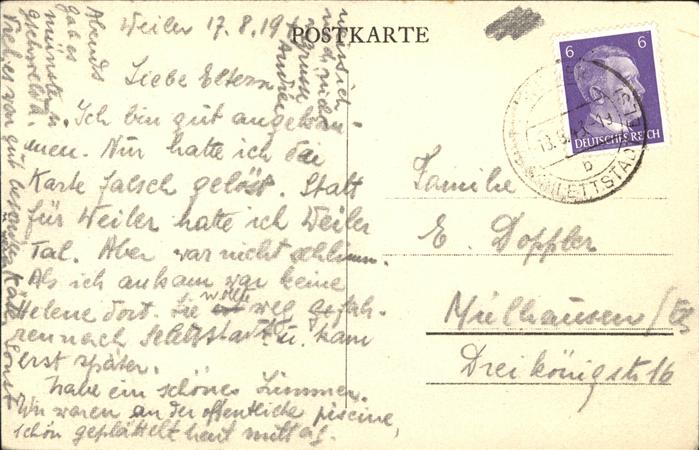 POSTKARTE
Weiler 17.8.19
Liebe Eltern
Ich bin gut angekom-
men. Nur hatte ich die
Karte falsch gelöst. Statt
für Weiler hatte ich Weiler
Tal. Aber war nicht schlimm.
Als ich ankam war keine
Helene dort. Sie wollte weg gefah-
ren nach Schlettstadt u. kam
erst später.
Habe ein schönes Zimmer.
Wir waren an der öffentliche piscine,
schön geplättelt heut mittag.
Abends
gab es
münster
gschwelda.
6 6
DEUTSCHES REICH
SCHLETTSTADT
b
Familie
E. Doppler
Mülhausen/Els
Dreikönigstr 16